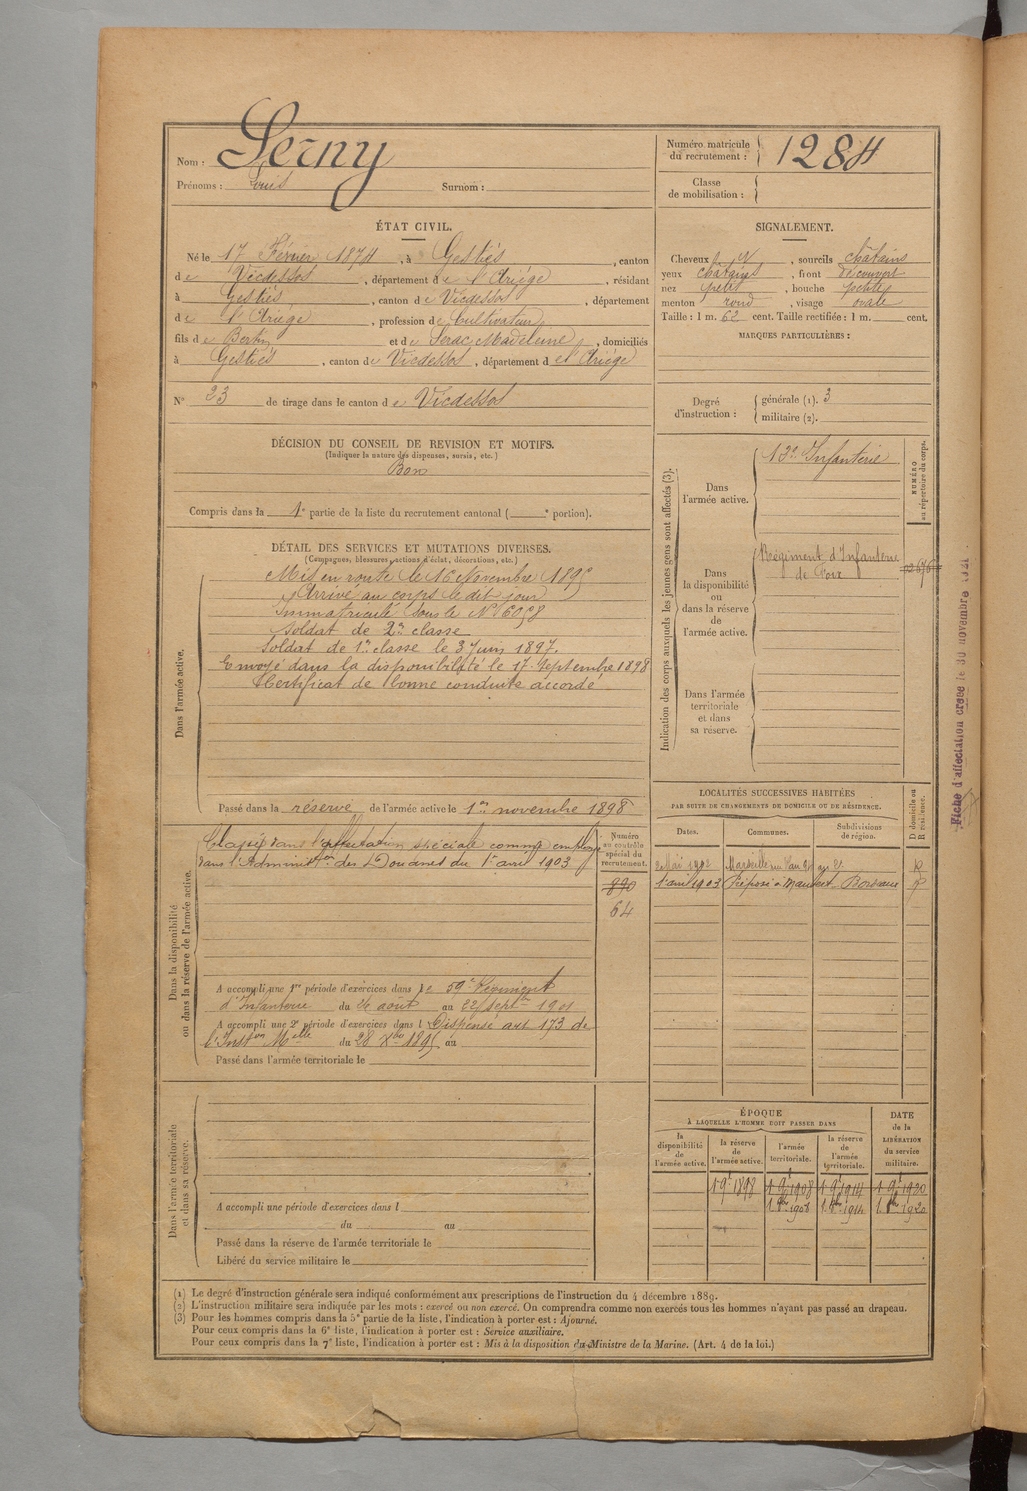 Nom : Serny
Prénoms : Louis Surnom :
Numéro matricule du recrutement : 1284
Classe de mobilisation :
ÉTAT CIVIL.
Né le 17 Février 1874, à Gestiès, canton
de Vicdessos, département de l'Ariège, résidant
à Gestiès, canton de Vicdessos, département
de l'Ariège, profession de Cultivateur,
fils de Bertin et de Serac Madeleine, domiciliés
à Gestiès, canton de Vicdessos, département de l'Ariège
N° 23 de tirage dans le canton de Vicdessos
SIGNALEMENT.
Cheveux et, sourcils châtains
yeux châtains, front découvert
nez petit, bouche petite
menton rond, visage ovale
Taille : 1 m. 62 cent. Taille rectifiée : 1 m. cent.
MARQUES PARTICULIÈRES :
Degré d'instruction : générale (1). 3
militaire (2).
DÉCISION DU CONSEIL DE REVISION ET MOTIFS.
(Indiquer la nature des dispenses, sursis, etc.)
Bon
Compris dans la 1e partie de la liste du recrutement cantonal ( e portion).
DÉTAIL DES SERVICES ET MUTATIONS DIVERSES.
(Campagnes, blessures, actions d'éclat, décorations, etc.)
Dans l'armée active.
Mis en route le 16 Novembre 1895
Arrivé au corps le dit jour
Immatriculé sous le N° 6098
Soldat de 2e classe
Soldat de 1e classe le 3 Juin 1897.
Envoyé dans la disponibilité le 17 Septembre 1898
Certificat de bonne conduite accordé
Passé dans la réserve de l'armée active le 1er novembre 1898
Indication des corps auxquels les jeunes gens sont affectés (3).
NUMÉRO au répertoire du corps.
Dans l'armée active.
13e Infanterie
Dans la disponibilité ou dans la réserve de l'armée active.
Régiment d'Infanterie
de Foix
Dans l'armée territoriale et dans sa réserve.
Fiche d'affectation créée le 30 novembre 1921
Dans la disponibilité ou dans la réserve de l'armée active.
Classé dans l'affectation spéciale comme employé
dans l'Administon des Douanes du 1er avril 1903
Numéro au contrôle spécial du recrutement.
890
64
A accompli une 1re période d'exercices dans le 59e Régiment
d'Infanterie du 26 août au 22 septbre 1901
A accompli une 2e période d'exercices dans l Dispensé art 173 de
l'Inston Melle du 28 Xbre 1895 au
Passé dans l'armée territoriale le
LOCALITÉS SUCCESSIVES HABITÉES
PAR SUITE DE CHANGEMENTS DE DOMICILE OU DE RÉSIDENCE.
Dates. Communes. Subdivisions de région. D domicile ou R résidence.
2 Mai 1902 Marseille R
1er avril 1903 Préposé à Bordeaux R
Dans l'armée territoriale et dans sa réserve.
A accompli une période d'exercices dans l
du au
Passé dans la réserve de l'armée territoriale le
Libéré du service militaire le
ÉPOQUE
À LAQUELLE L'HOMME DOIT PASSER DANS
DATE de la LIBÉRATION du service militaire.
la disponibilité de l'armée active. la réserve de l'armée active. l'armée territoriale. la réserve de l'armée territoriale.
1 9e 1898 1 9e 1908 1 9e 1914 1 9e 1920
1 8bre 1908 1 8bre 1914 1 8bre 1920
(1) Le degré d'instruction générale sera indiqué conformément aux prescriptions de l'instruction du 4 décembre 1889.
(2) L'instruction militaire sera indiquée par les mots : exercé ou non exercé. On comprendra comme non exercés tous les hommes n'ayant pas passé au drapeau.
(3) Pour les hommes compris dans la 5e partie de la liste, l'indication à porter est : Ajourné.
Pour ceux compris dans la 6e liste, l'indication à porter est : Service auxiliaire.
Pour ceux compris dans la 7e liste, l'indication à porter est : Mis à la disposition du Ministre de la Marine. (Art. 4 de la loi.)